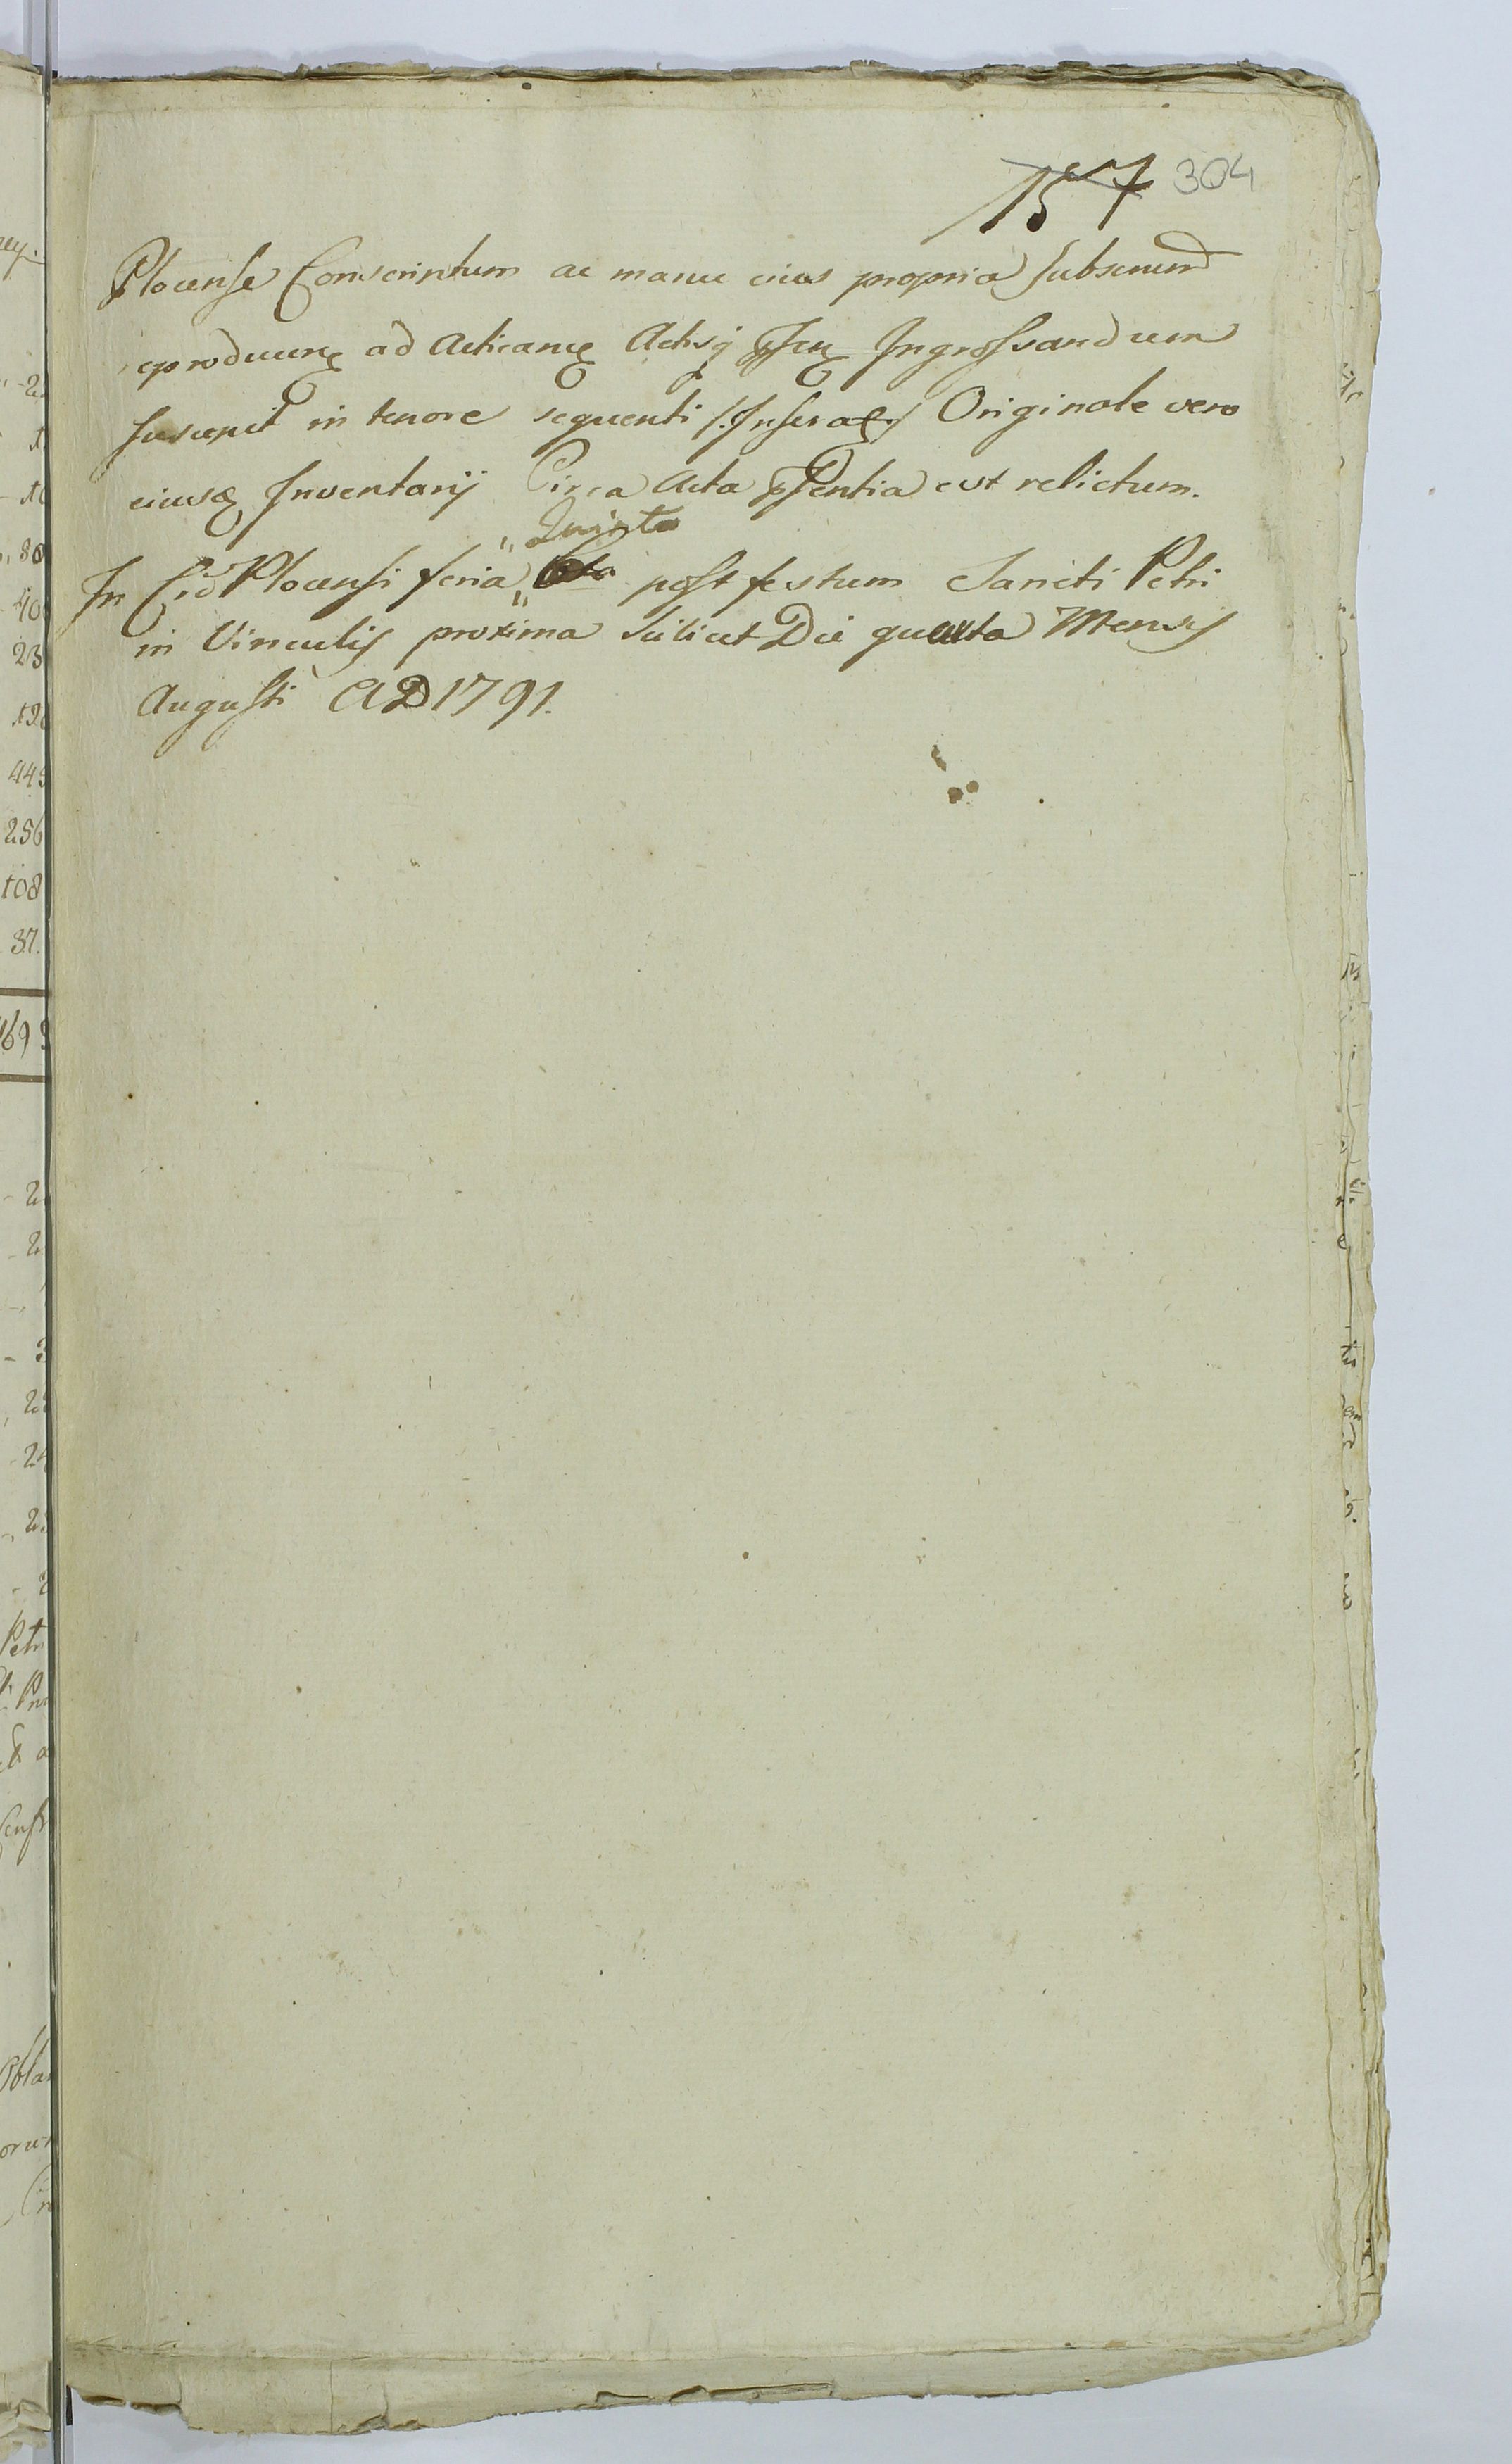 157 304
Plocense Conscriptum ac manu eius propria subscriend
reproducens ad Acticand Actisq pnt Ingrossandum
suscepit in tenore sequenti /:Inserat:/ Originale vero
eiusd Inventarij Circa Acta psentia est relictum.
Quinta
In Cid Plocensi feria post festum Sancti Petri
in Vinculis proxima scilicet Die quarta Mensis
Augusti AD 1791.